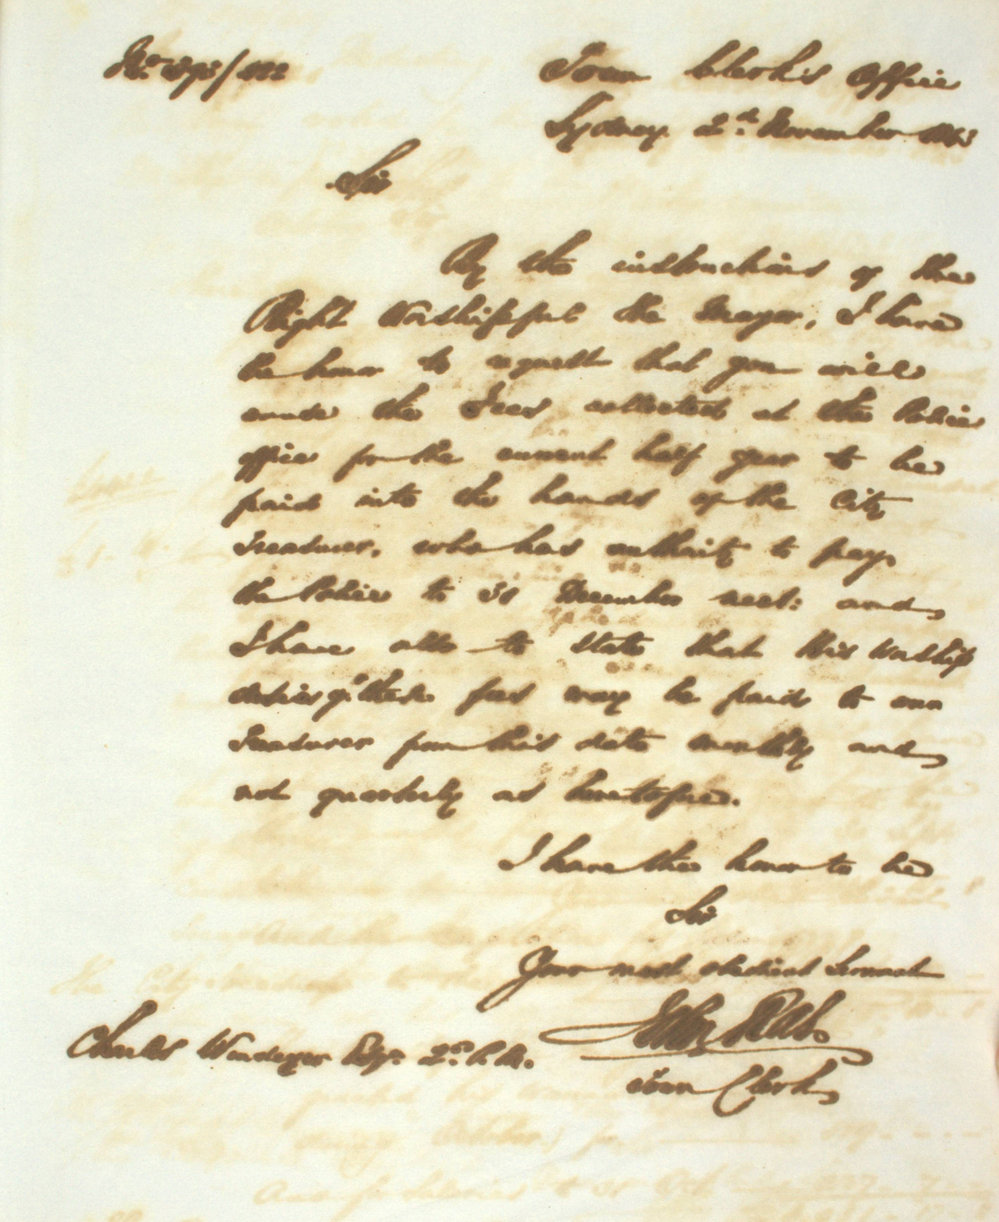 Town Clerk's Office
Sydney. 2d. November 1843
Sir
By the instructions of the
Right Worshipful the Mayor, I have
the honor to request that you will
cause the Fees collected at the Police
office for the current half year to be
paid into the hands of the City
Treasurer, who has authority to pay
the Police to 31 December next: and
I have also to state that His Worship
desires these fees may be paid to our
Treasurer from this date monthly and
not quarterly as heretofore.
I have the honor to be
Sir
Your most obedient Servant
John Rae
Town Clerk
Charles Windeyer Esqr. 2nd. P. M.